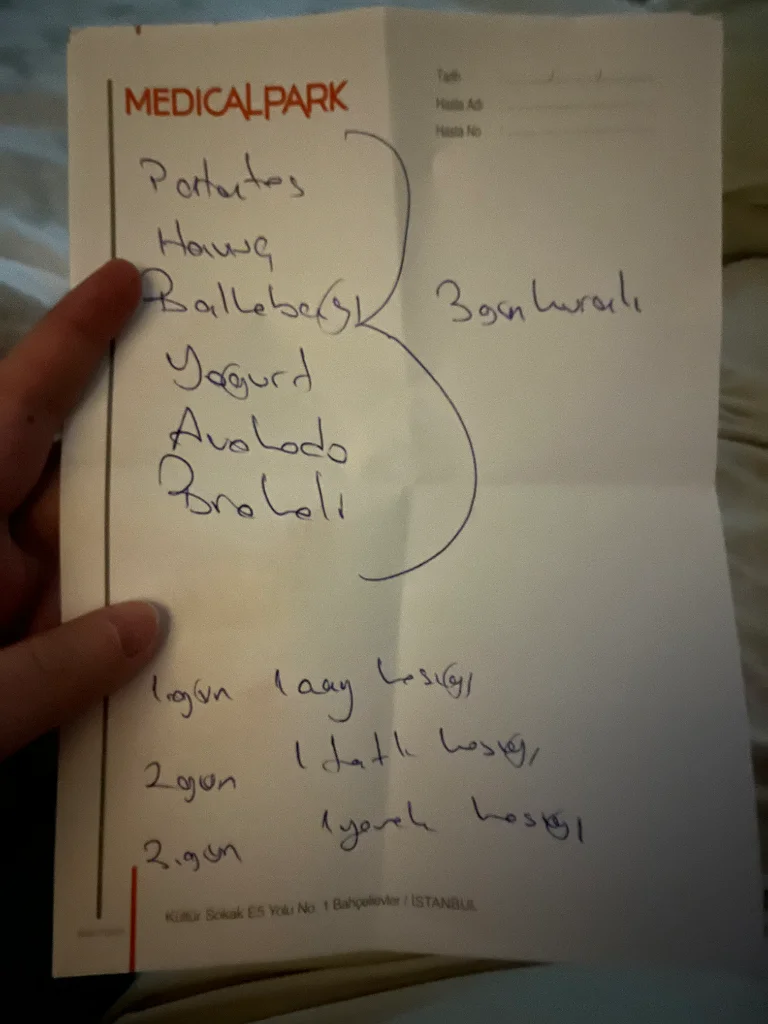 MEDICALPARK
Tarih
Hasta Adı
Hasta No
Patates
Havuç
Balkabağı
3 gün kuralı
Yoğurt
Avokado
Brokoli
1.gün 1 çay kaşığı
2 gün 1 tatlı kaşığı
3.gün 1 yemek kaşığı
Kültür Sokak E5 Yolu No. 1 Bahçelievler / İSTANBUL